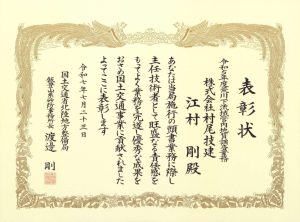 表彰状
令和6年度荒川下流流域管内地質調査業務
株式会社村尾技建
江村 剛殿
あなたは当局施行の頭書業務に際し
主任技術者として旺盛なる責任感を
もってよく業務を完遂し優秀な成果を
おさめ国土交通事業に貢献されました
よってここに表彰します
令和七年七月二十三日
国土交通省北陸地方整備局
飯豊山系砂防事務所長 渡邉 剛